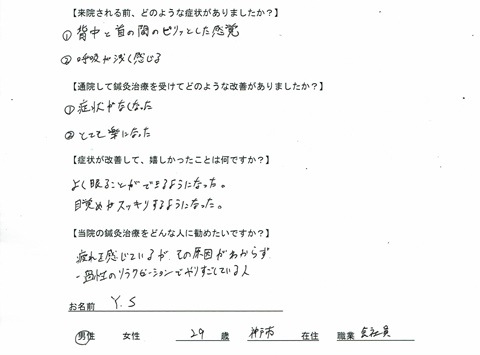 【来院される前、どのような症状がありましたか?】
① 背中と首の間のピリッとした感覚
② 呼吸が浅く感じる
【通院して鍼灸治療を受けてどのような改善がありましたか?】
① 症状がなくなった
② とても楽になった
【症状が改善して、嬉しかったことは何ですか?】
よく眠ることができるようになった。
目覚めがスッキリするようになった。
【当院の鍼灸治療をどんな人に勧めたいですか?】
疲れを感じているが、その原因がわからず
一過性のリラクゼーションでやりすごしている人
お名前 Y.S
男性 女性 29 歳 神戸市 在住 職業 会社員